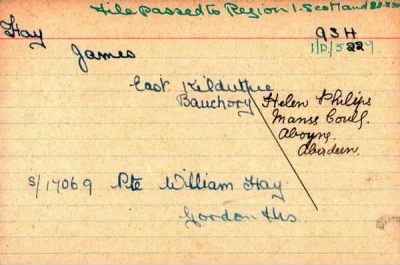 File passed to Region 1. Scotland
Hay
93H
1/D/5227
James
East Kilduthie
Banchory
Helen Philips
Manse Coull.
Aboyne.
Aberdeen.
S/17069 Pte William Hay
Gordon Hrs